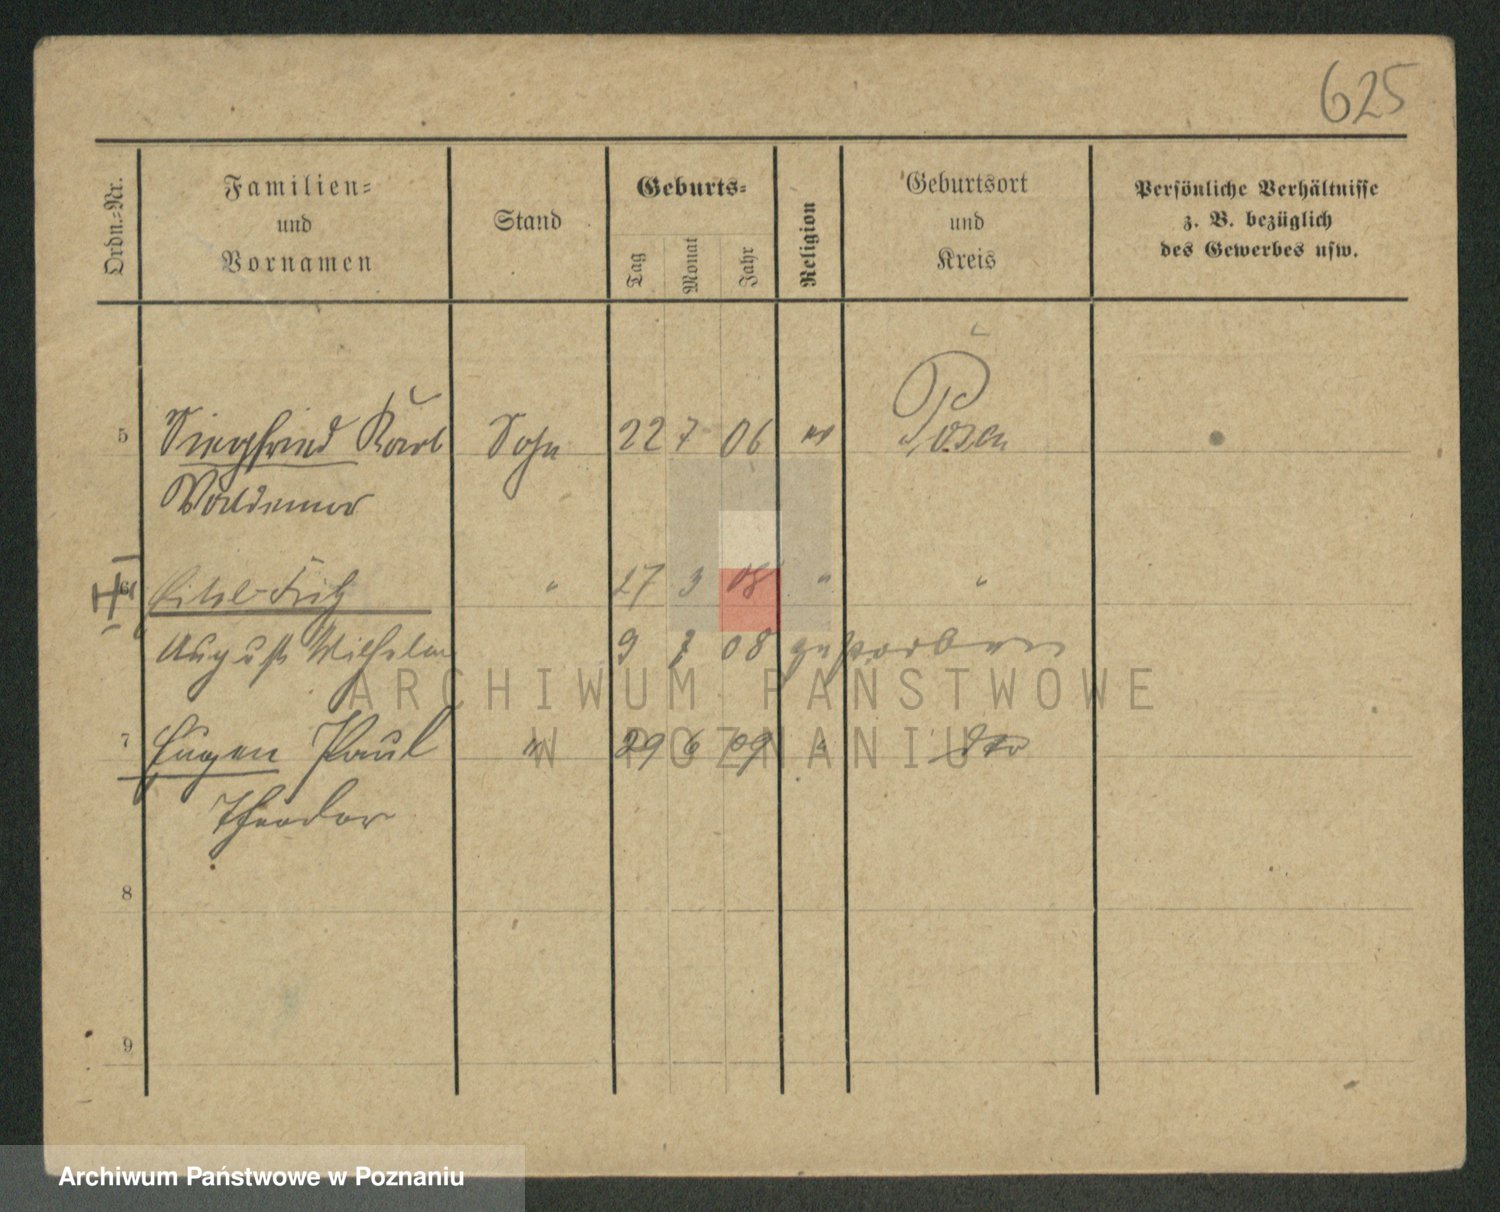 625
Ordn.-Nr.
Familien-
und
Vornamen
Stand
Geburts-
Tag
Monat
Jahr
Religion
Geburtsort
und
Kreis
Persönliche Verhältnisse
z. B. bezüglich
des Gewerbes usw.
5 Siegfried Karl Sohn 22 7 06 ev Posen
Waldemar
6 Fritz " 27 3 08 " "
August Wilhelm 9 7 08 gestorben
7 Eugen Paul " 29 6 09 " dto
Theodor
8
9
ARCHIWUM PAŃSTWOWE
W POZNANIU
Archiwum Państwowe w Poznaniu